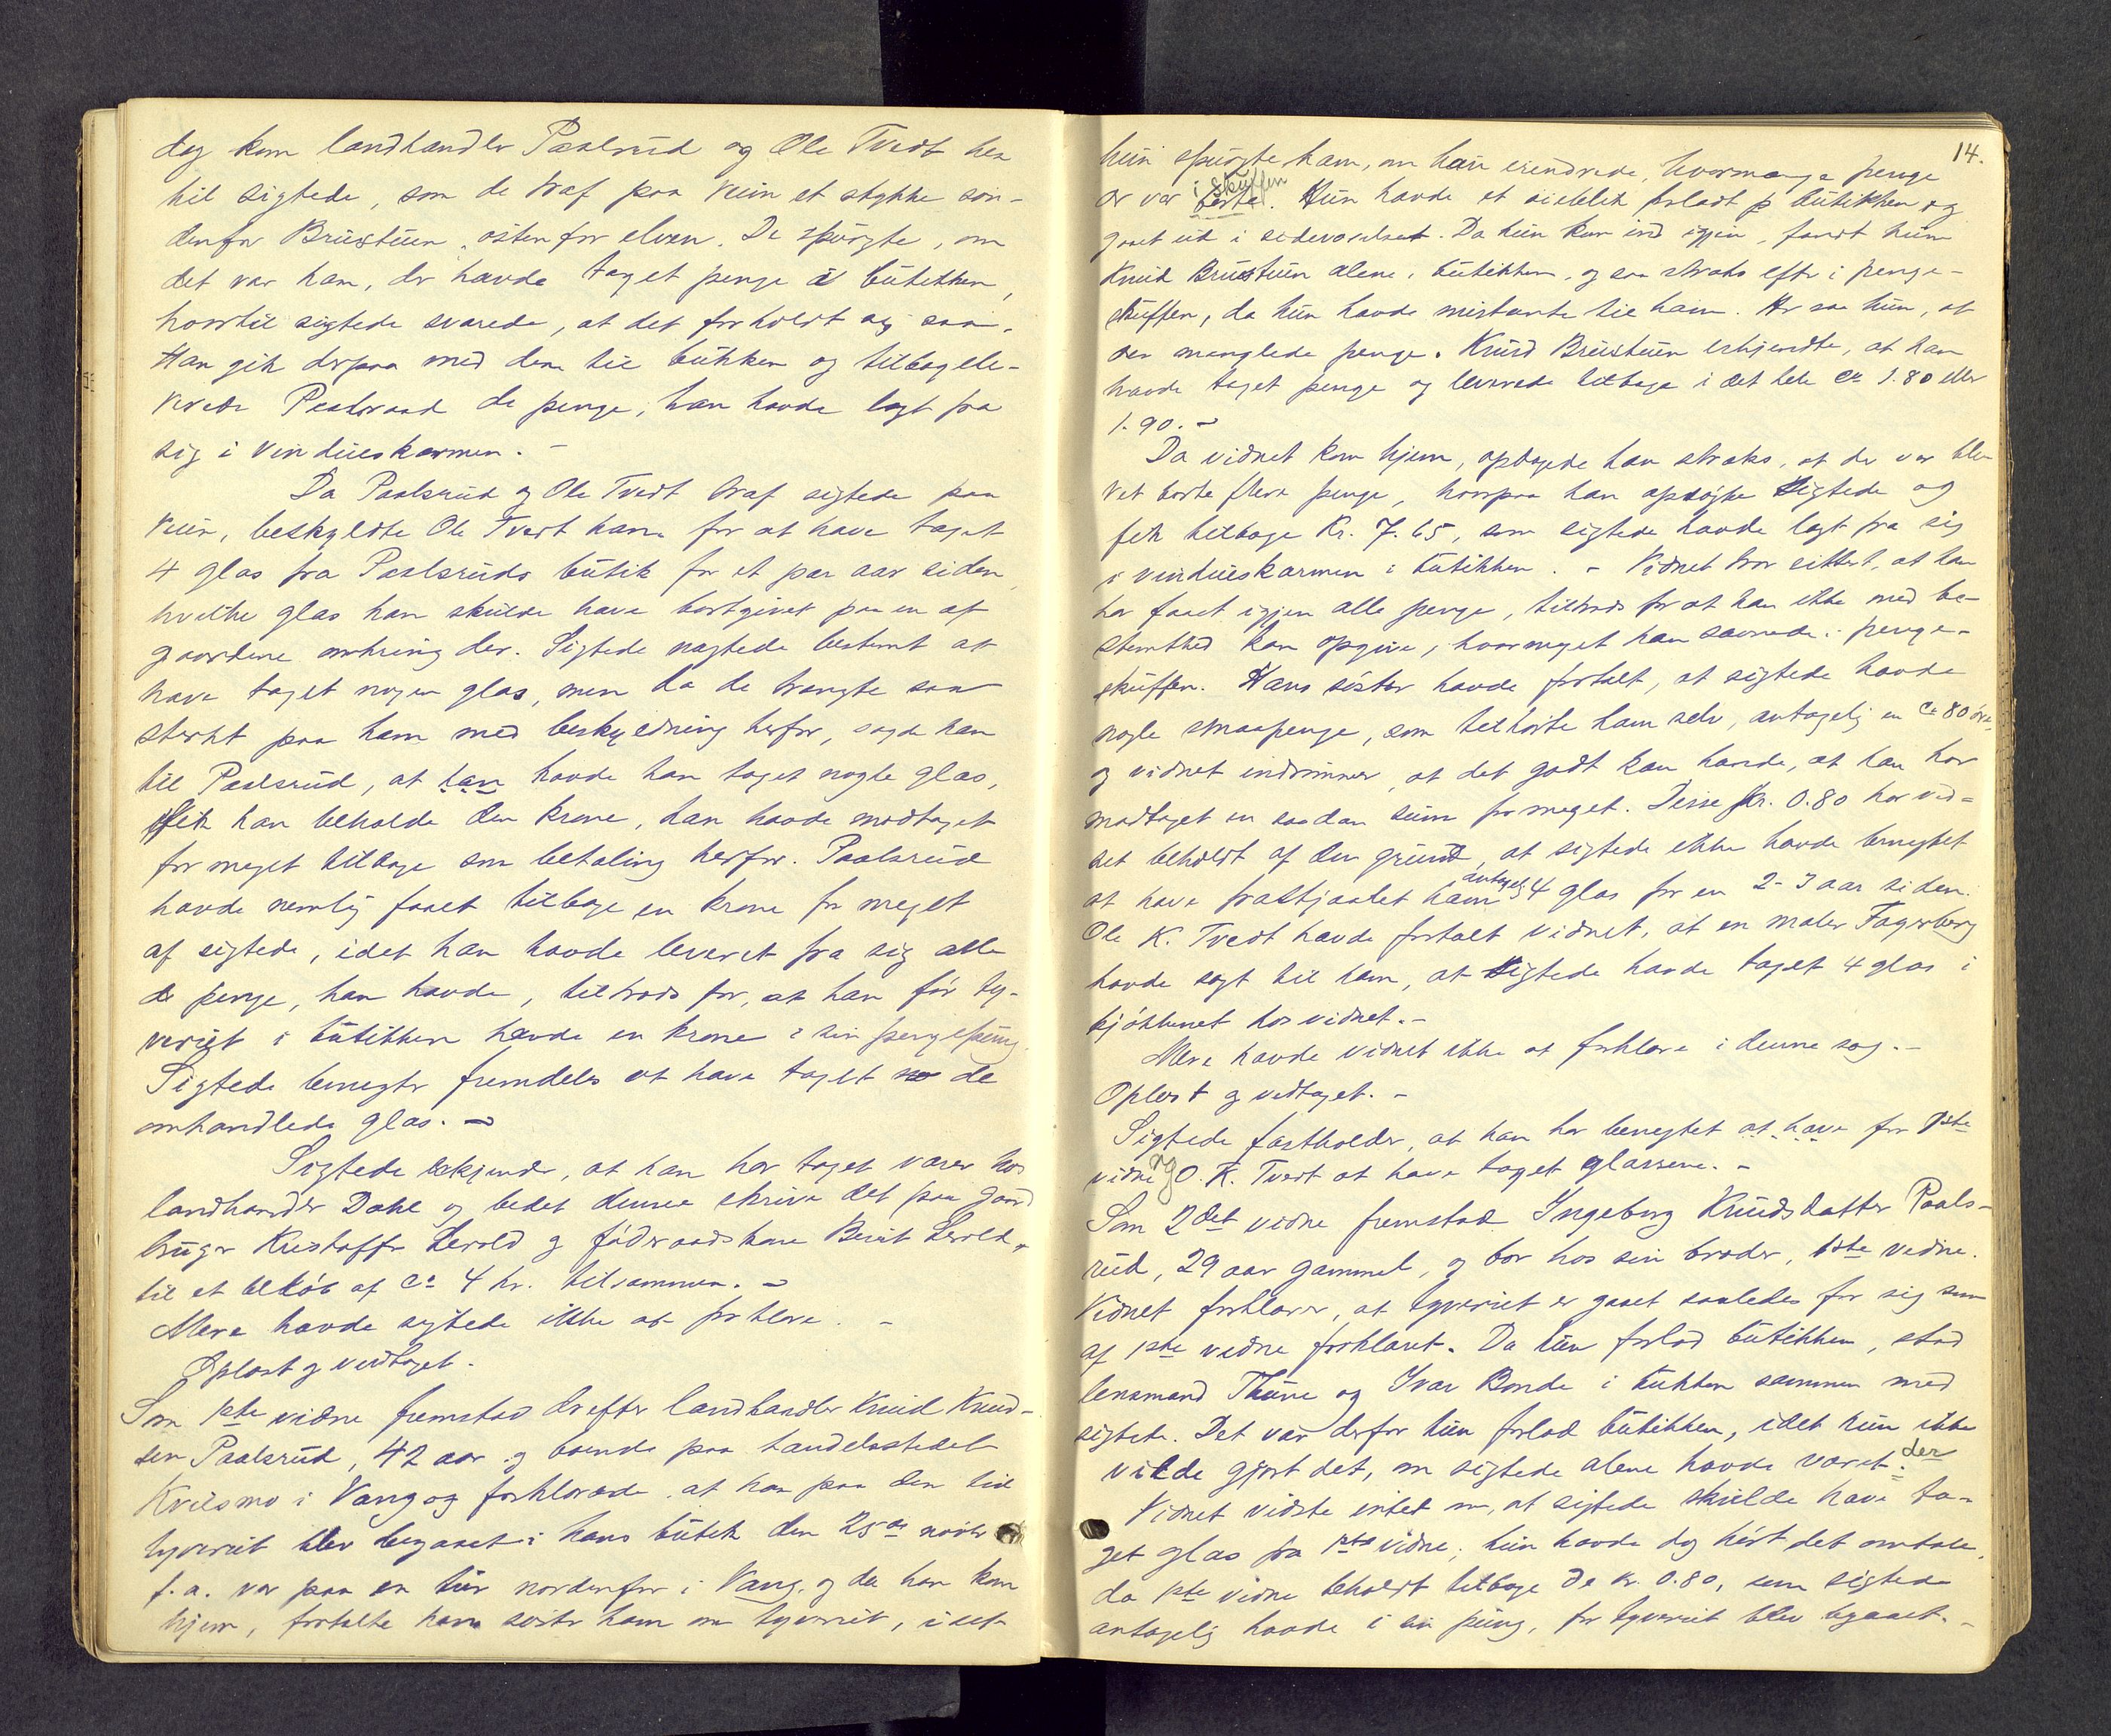 dag kom landhandler Paalsrud og Ole Tvedt hen
til sigtede, som de traf paa veien et stykke søn-
denfor Brustuen, østenfor elven. De spurgte, om
det var ham, der havde taget penge i butikken,
hvortil sigtede svarede, at det forholdt sig saa.
Han gik derpaa med dem til butikken og tilbagele-
verede Paalsrud de penge, han havde lagt fra
sig i vindueskarmen. -
Da Paalsrud og Ole Tvedt traf sigtede paa
veien, beskyldte Ole Tvedt ham for at have taget
4 glas fra Paalsruds butik for et par aar siden,
hvilke glas han skulde have bortgivet paa en af
gaardene omkring der. Sigtede nægtede bestemt at
have taget nogen glas, men da de trængte saa
sterkt paa ham med beskyldning herfor, sagde han
til Paalsrud, at han havde han taget nogle glas,
fik han beholde den krone, han havde modtaget
for meget tilbage som betaling herfor. Paalsrud
havde nemlig faaet tilbage en krone for meget
af sigtede, idet han havde leveret fra sig alle
de penge, han havde, tiltrods for, at han før ty-
veriet i butikken havde en krone i sin pengepung.
Sigtede benegter fremdeles at have taget de
omhandlede glas. -
Sigtede erkjender, at han har taget varer hos
landhandler Dahl og bedet denne skrive det paa gaard
bruger Kristoffer Leirold og føderaadskone Berit Leirold,
til et beløb af ca 4 kr. tilsammen. -
Mere havde sigtede ikke at forklare. -
Oplæst og vedtaget.
Som 1ste vidne fremstod derefter landhandler Knud Knud-
sen Paalsrud, 42 aar og boende paa handelsstedet
Kvismo i Vang og forklarede, at han paa den tid
tyveriet blev begaaet i hans butik den 25de novbr
f.a. var paa en tur nordenfor i Vang, og da han kom
hjem, fortalte hans søster ham om tyveriet, idet
14.
hun spurgte ham, om han erindrede, hvormange penge
i skuffen
der var borte. Hun havde et øieblik forladt butikken og
gaaet ud i sideværelset. Da hun kom ind igjen, fandt hun
Knud Brustuen alene i butikken, og saa straks efter i penge-
skuffen, da hun havde mistanke til ham. Her saa hun, at
der manglede penge. Knud Brustuen erkjendte, at han
havde taget penge og leverede tilbage i det hele ca 1.80 eller
1.90. -
Da vidnet kom hjem, opdagede han straks, at der var ble-
vet borte flere penge, hvorpaa han opsøgte sigtede og
fik tilbage Kr. 7.65, som sigtede havde lagt fra sig
i vindueskarmen i butikken. - Vidnet tror sikkert, at han
har faaet igjen alle penge, tiltrods for at han ikke med be-
stemthed kan opgive, hvormeget han savnede i penge-
skuffen. Hans søster havde fortalt, at sigtede havde
nogle smaapenge, som tilhørte ham selv, antagelig en ca 80 øre,
og vidnet indrømmer, at det godt kan hænde, at han har
modtaget en saadan sum for meget. Disse kr. 0.80 har vid-
net beholdt af den grund, at sigtede ikke havde benegtet
antagelig
at have frastjaalet ham 4 glas for en 2-3 aar siden.
Ole K. Tvedt havde fortalt vidnet, at en maler Fagerberg
havde sagt til ham, at sigtede havde taget 4 glas i
kjøkkenet hos vidnet. -
Mere havde vidnet ikke at forklare i denne sag. -
Oplæst og vedtaget. -
Sigtede fastholder, at han har benegtet at have for 1ste
vidne og O. K. Tvedt at have taget glassene. -
Som 2det vidne fremstod Ingeborg Knudsdatter Paals-
rud, 29 aar gammel, og bor hos sin broder, 1ste vidne.
Vidnet forklarer, at tyveriet er gaaet saaledes for sig som
af 1ste vidne forklaret. Da hun forlod butikken, stod
lensmand Thune og Ivar Bonde i butikken sammen med
sigtede. Det var derfor hun forlod butikken, idet hun ikke
vilde gjort det, om sigtede alene havde været der.
Vidnet vidste intet om, at sigtede skulde have ta-
get glas fra 1ste vidne; hun havde dog hørt det omtale,
da 1ste vidne beholdt tilbage de kr. 0.80, som sigtede
antagelig havde i sin pung, før tyveriet blev begaaet. -